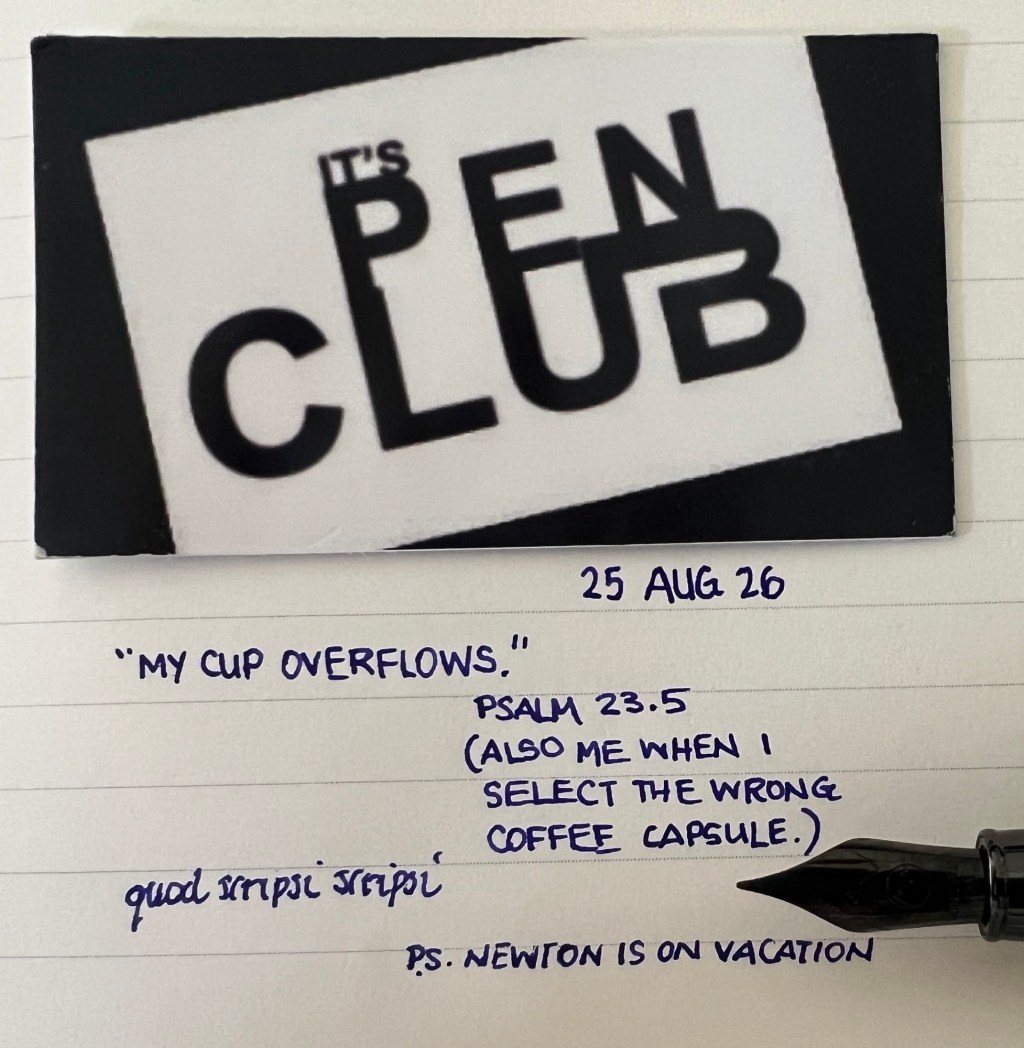 IT'S
PEN
CLUB
25 AUG 26
"MY CUP OVERFLOWS."
PSALM 23.5
(ALSO ME WHEN I
SELECT THE WRONG
COFFEE CAPSULE.)
quod scripsi scripsi
P.S. NEWTON IS ON VACATION